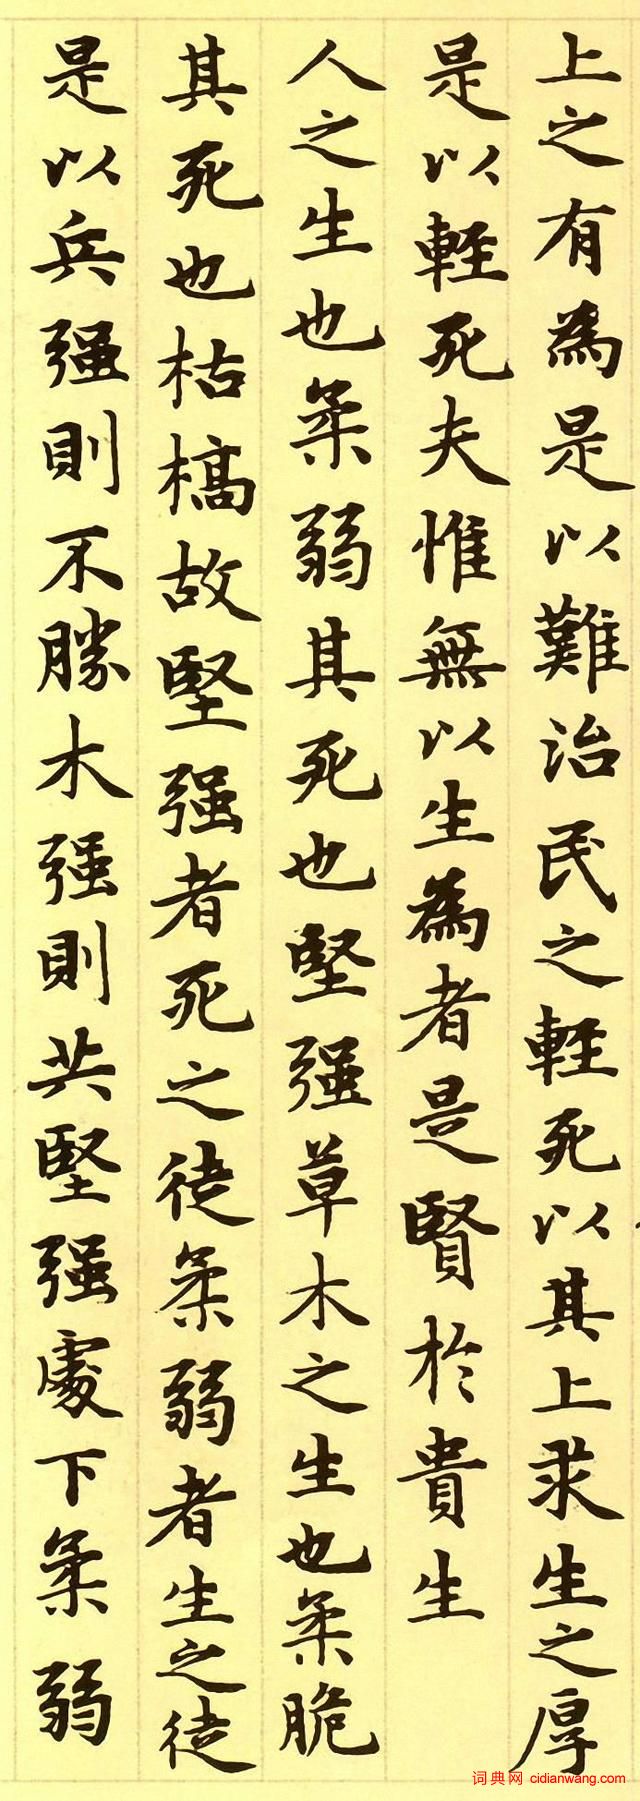 上之有為是以難治民之輕死以其上求生之厚
是以輕死夫惟無以生為者是賢於貴生
人之生也柔弱其死也堅强草木之生也柔脆
其死也枯槁故堅强者死之徒柔弱者生之徒
是以兵强則不勝木强則共堅强處下柔弱
词典网 cidianwang.com